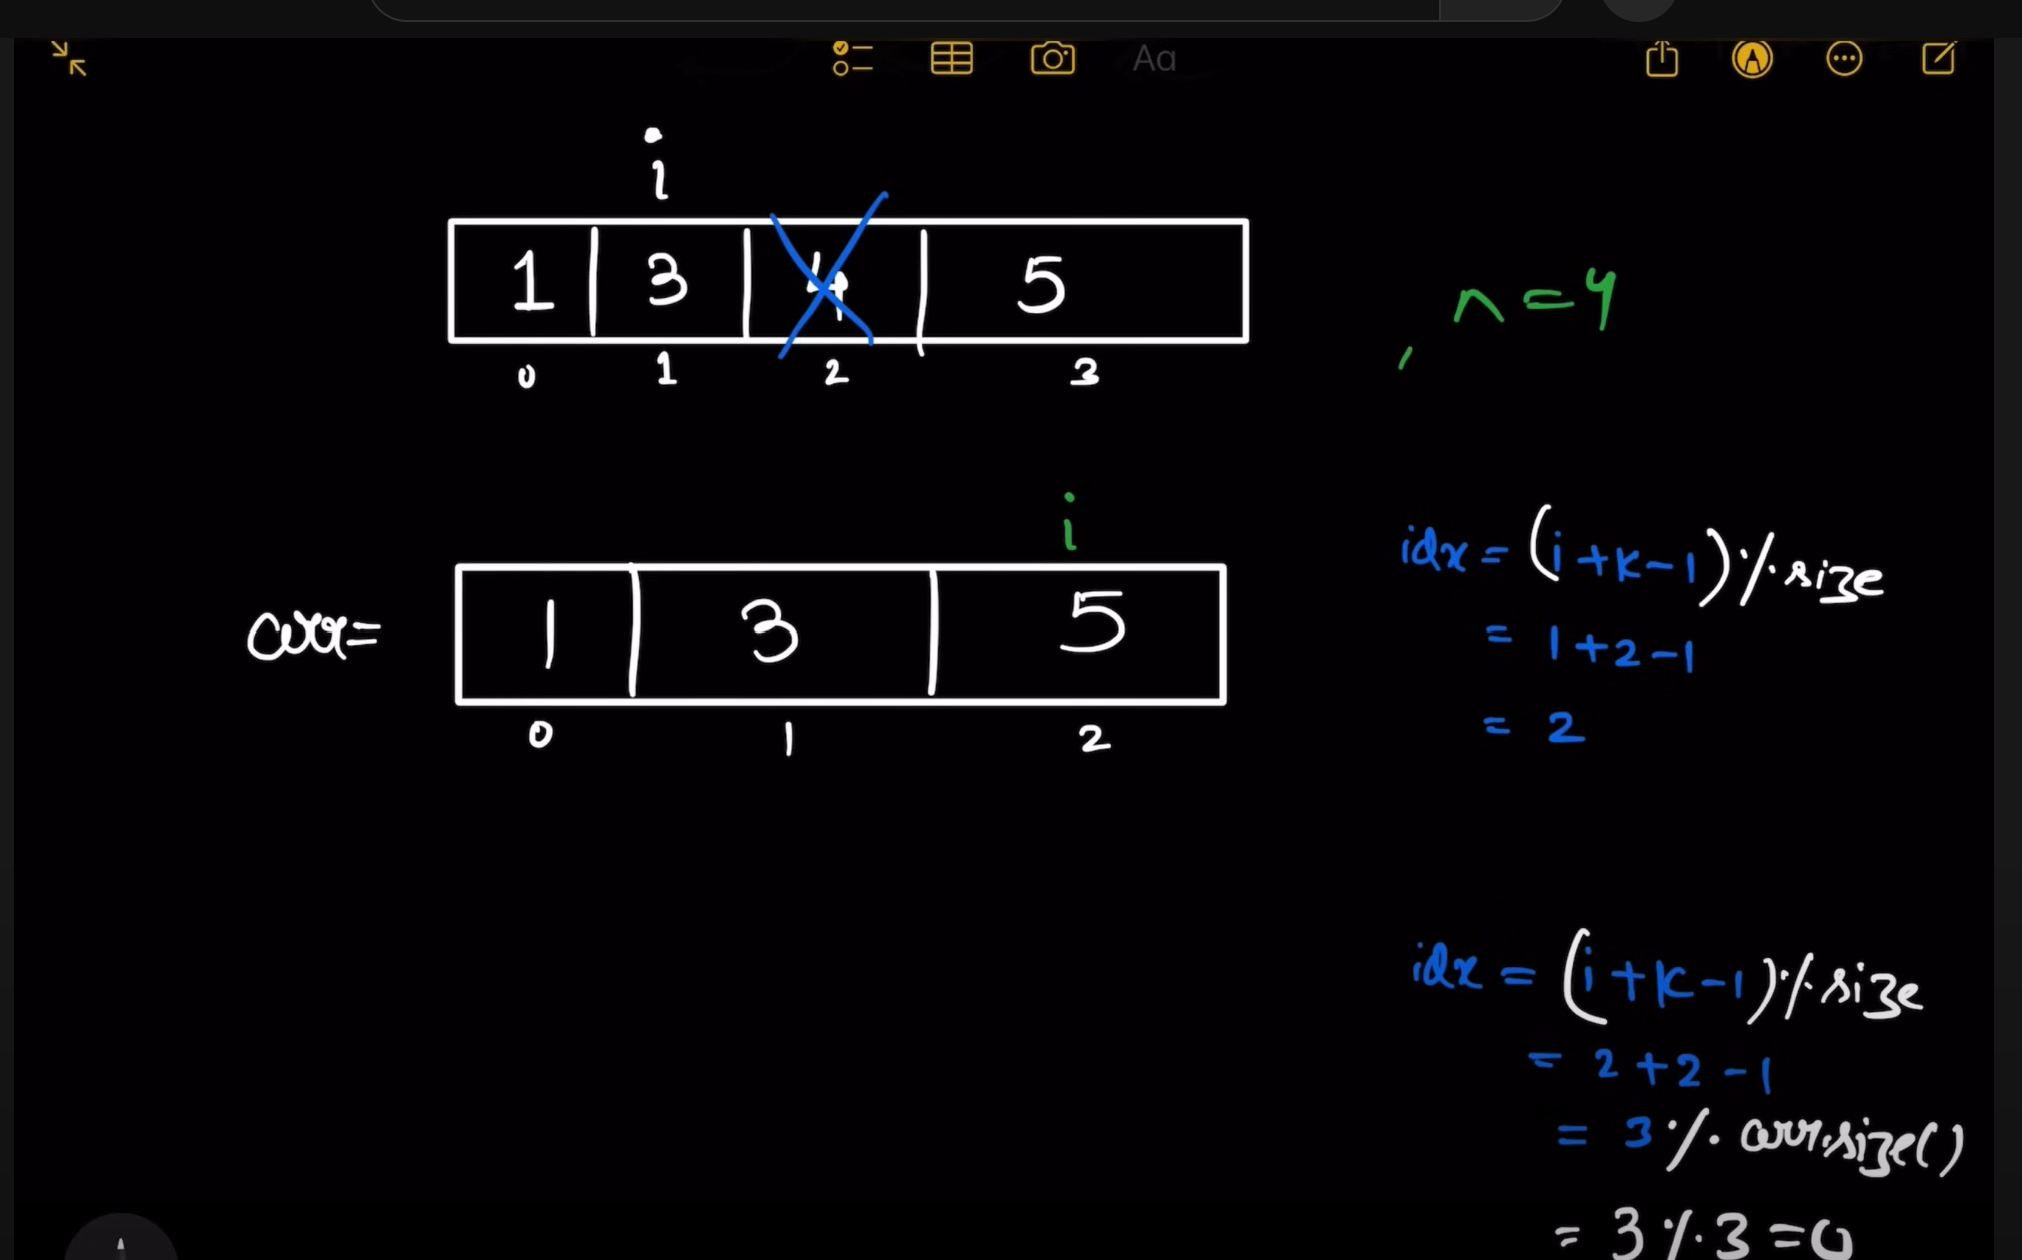 Aa
i
1 3 4 5
0 1 2 3
, n = 4
i
arr= 1 3 5
0 1 2
idx = (i+k-1)%size
= 1+2-1
= 2
idx = (i+k-1)%size
= 2+2-1
= 3 % arr.size()
= 3 % 3 = 0